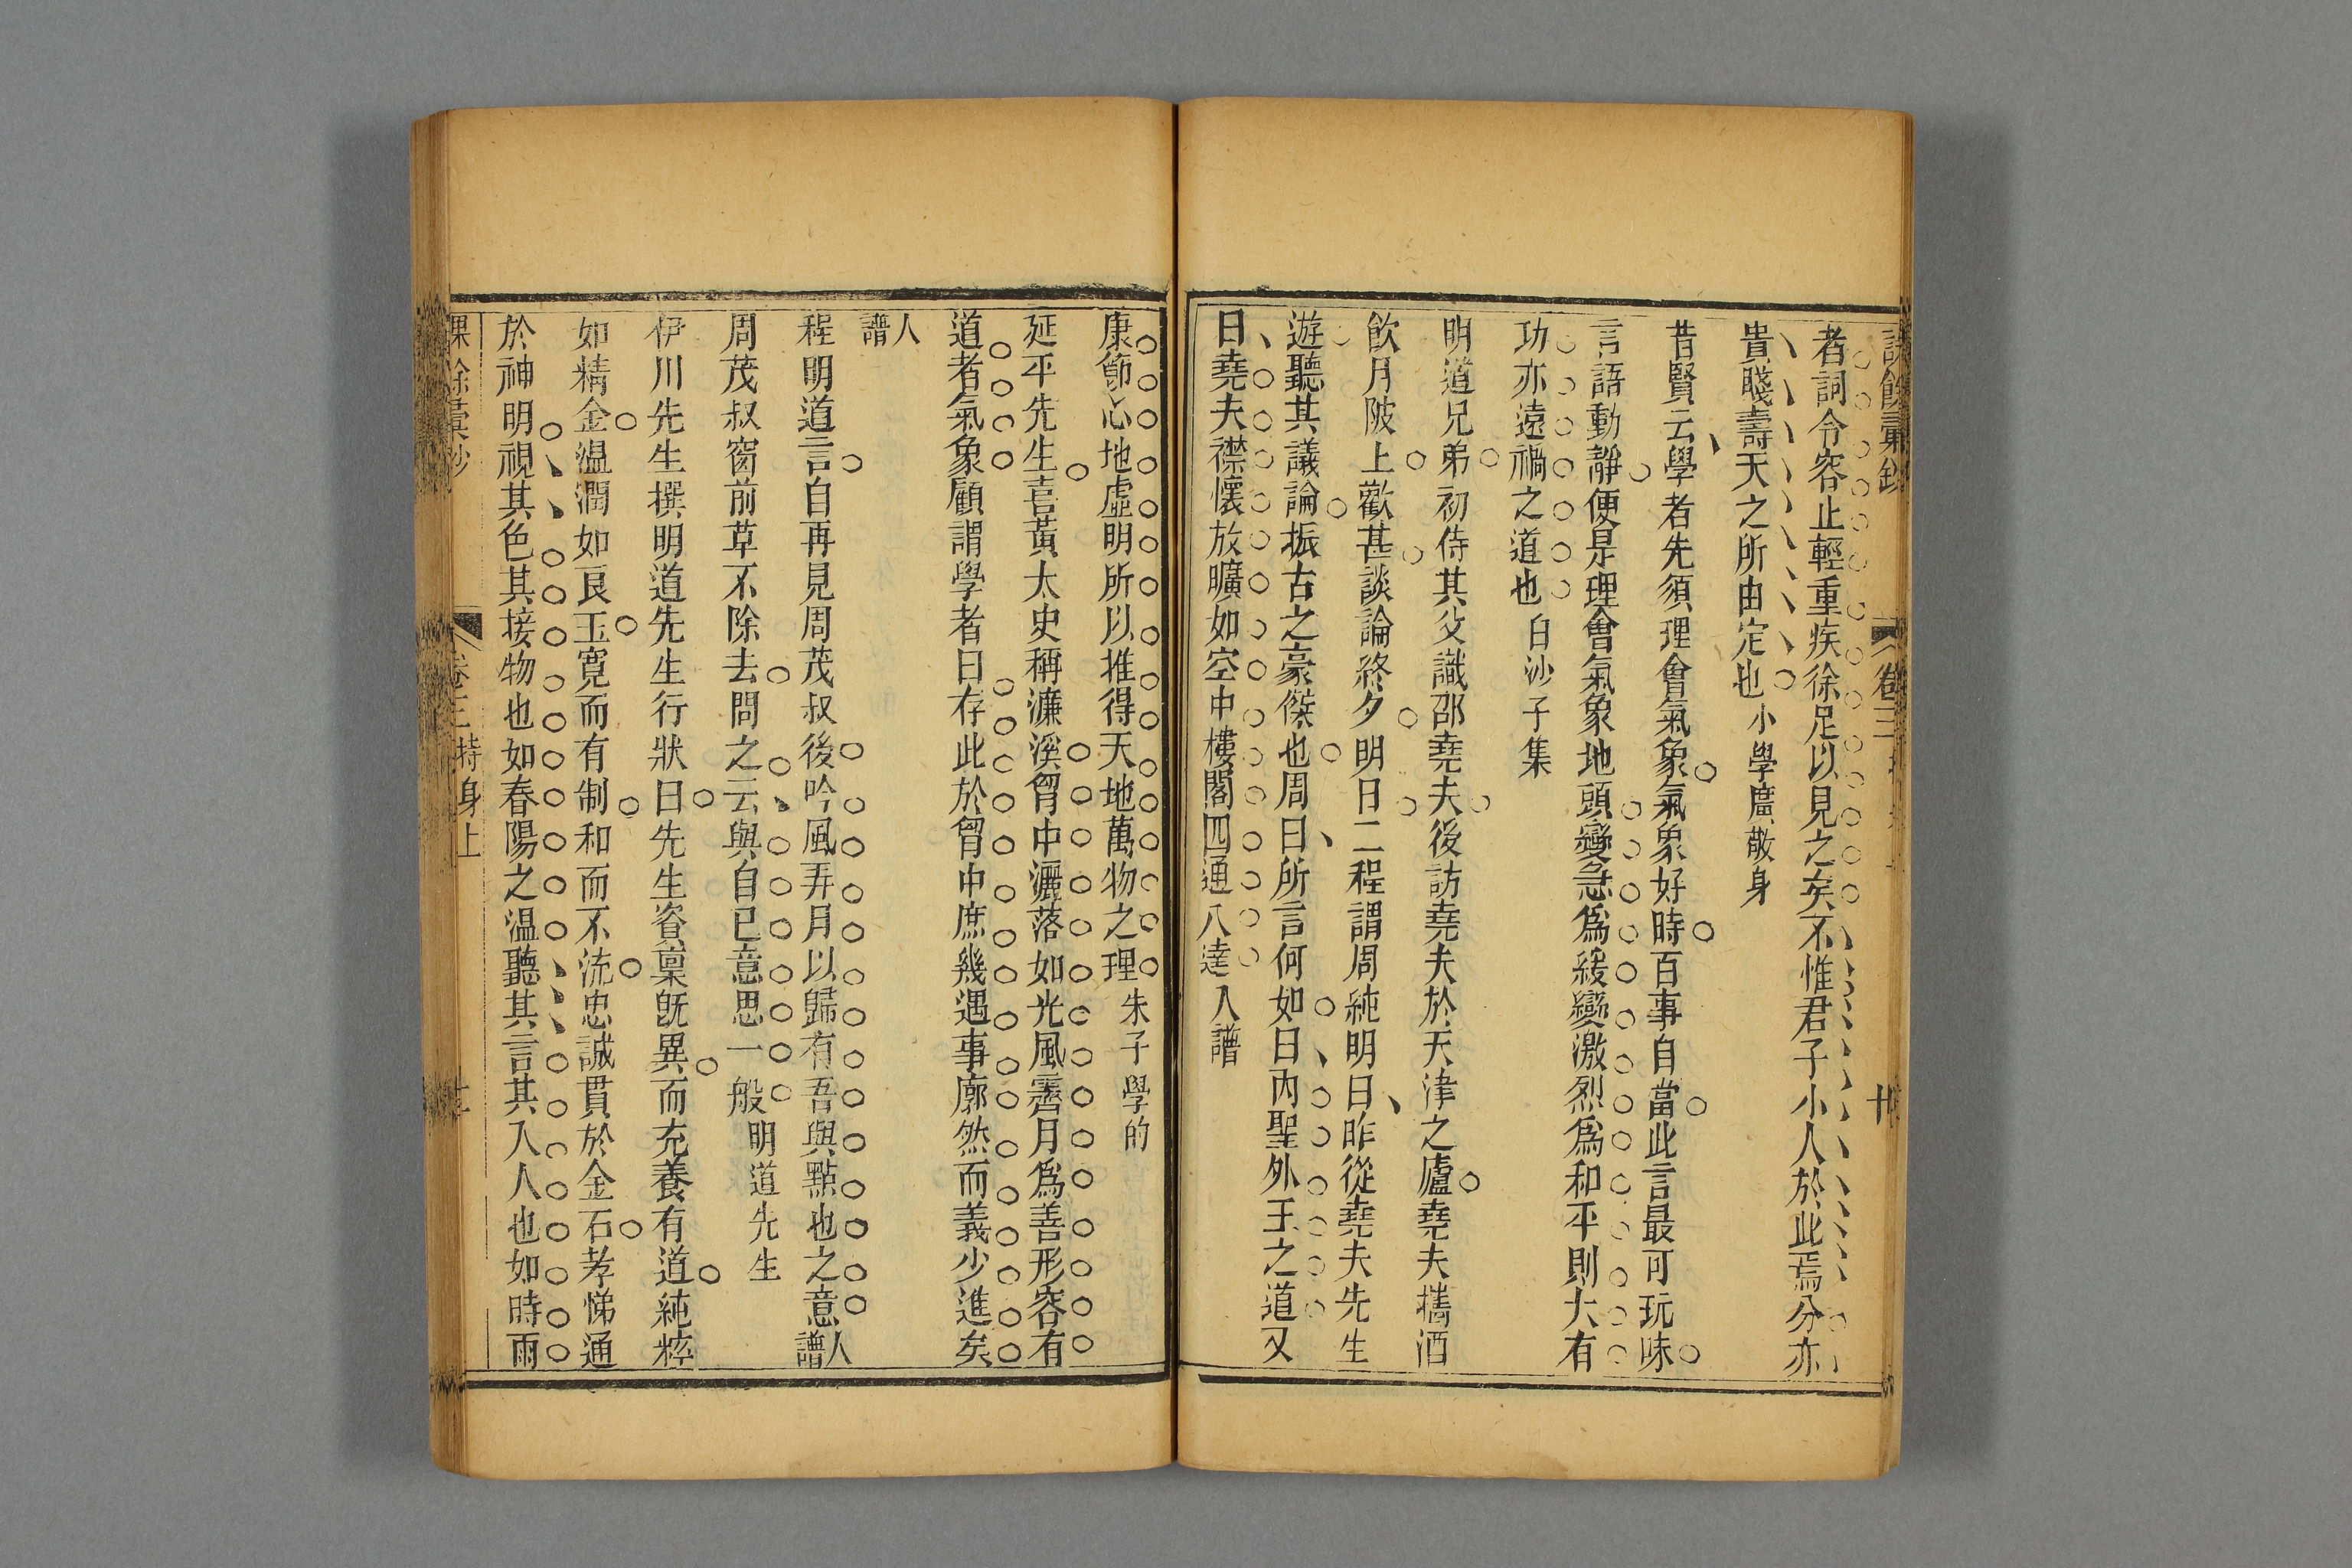 者詞令容止輕重疾徐足以見之矣不惟君子小人於此焉分亦
貴賤壽夭之所由定也小學廣敬身
昔賢云學者先須理會氣象氣象好時百事自當此言最可玩味
言語動靜便是理會氣象地頭變急爲緩變激烈爲和平則大有
功亦遠禍之道也白沙子集
明道兄弟初侍其父識邵堯夫後訪堯夫於天津之廬堯夫攜酒
飲月陂上歡甚談論終夕明日二程謂周純明曰昨從堯夫先生
遊聽其議論振古之豪傑也周曰所言何如曰內聖外王之道又
曰堯夫襟懷放曠如空中樓閣四通八達人譜
康節心地虛明所以推得天地萬物之理朱子學的
延平先生喜黃太史稱濂溪胷中灑落如光風霽月爲善形容有
道者氣象顧謂學者曰存此於胷中庶幾遇事廓然而義少進矣
人譜
程明道言自再見周茂叔後吟風弄月以歸有吾與點也之意人譜
周茂叔窗前草不除去問之云與自己意思一般明道先生
伊川先生撰明道先生行狀曰先生資稟旣異而充養有道純粹
如精金温潤如良玉寬而有制和而不流忠誠貫於金石孝悌通
於神明視其色其接物也如春陽之温聽其言其入人也如時雨
課餘彙鈔 卷三 持身上